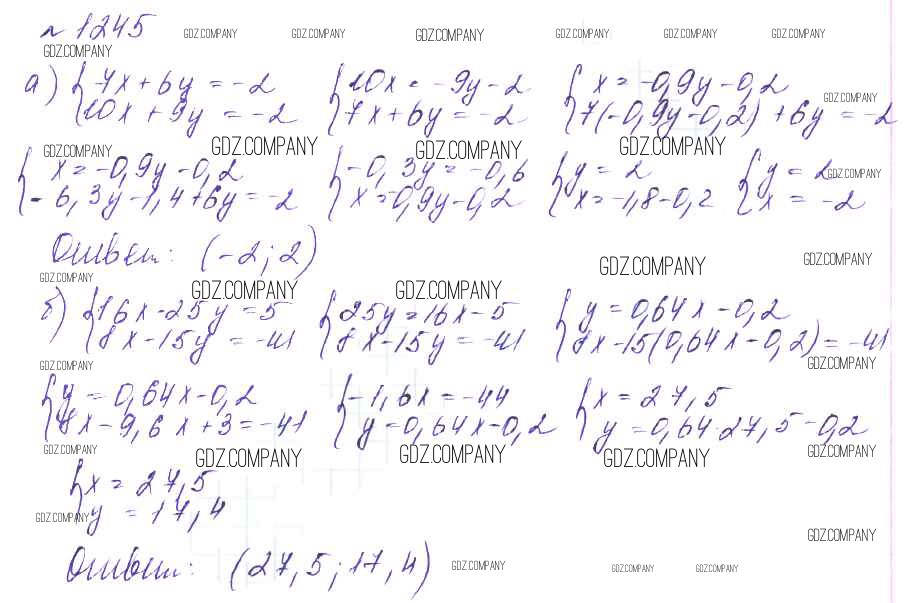 № 1245 GDZ.COMPANY GDZ.COMPANY GDZ.COMPANY GDZ.COMPANY GDZ.COMPANY GDZ.COMPANY
GDZ.COMPANY
а) { 7x + 6y = -2 { 10x = -9y - 2 { x = -0,9y - 0,2
10x + 9y = -2 7x + 6y = -2 7(-0,9y - 0,2) + 6y = -2
GDZ.COMPANY
GDZ.COMPANY GDZ.COMPANY GDZ.COMPANY GDZ.COMPANY
{ x = -0,9y - 0,2 { -0,3y = -0,6 { y = 2 { y = 2
-6,3y - 1,4 + 6y = -2 x = -0,9y - 0,2 x = -1,8 - 0,2 x = -2
GDZ.COMPANY
Ответ: (-2; 2)
GDZ.COMPANY GDZ.COMPANY
GDZ.COMPANY GDZ.COMPANY GDZ.COMPANY
б) { 16x - 25y = 5 { 25y = 16x - 5 { y = 0,64x - 0,2
8x - 15y = -41 8x - 15y = -41 8x - 15(0,64x - 0,2) = -41
GDZ.COMPANY GDZ.COMPANY
{ y = 0,64x - 0,2 { -1,6x = -44 { x = 27,5
8x - 9,6x + 3 = -41 y = 0,64x - 0,2 y = 0,64·27,5 - 0,2
GDZ.COMPANY GDZ.COMPANY GDZ.COMPANY GDZ.COMPANY GDZ.COMPANY
{ x = 27,5
y = 17,4
GDZ.COMPANY
GDZ.COMPANY
Ответ: (27,5; 17,4)
GDZ.COMPANY GDZ.COMPANY GDZ.COMPANY